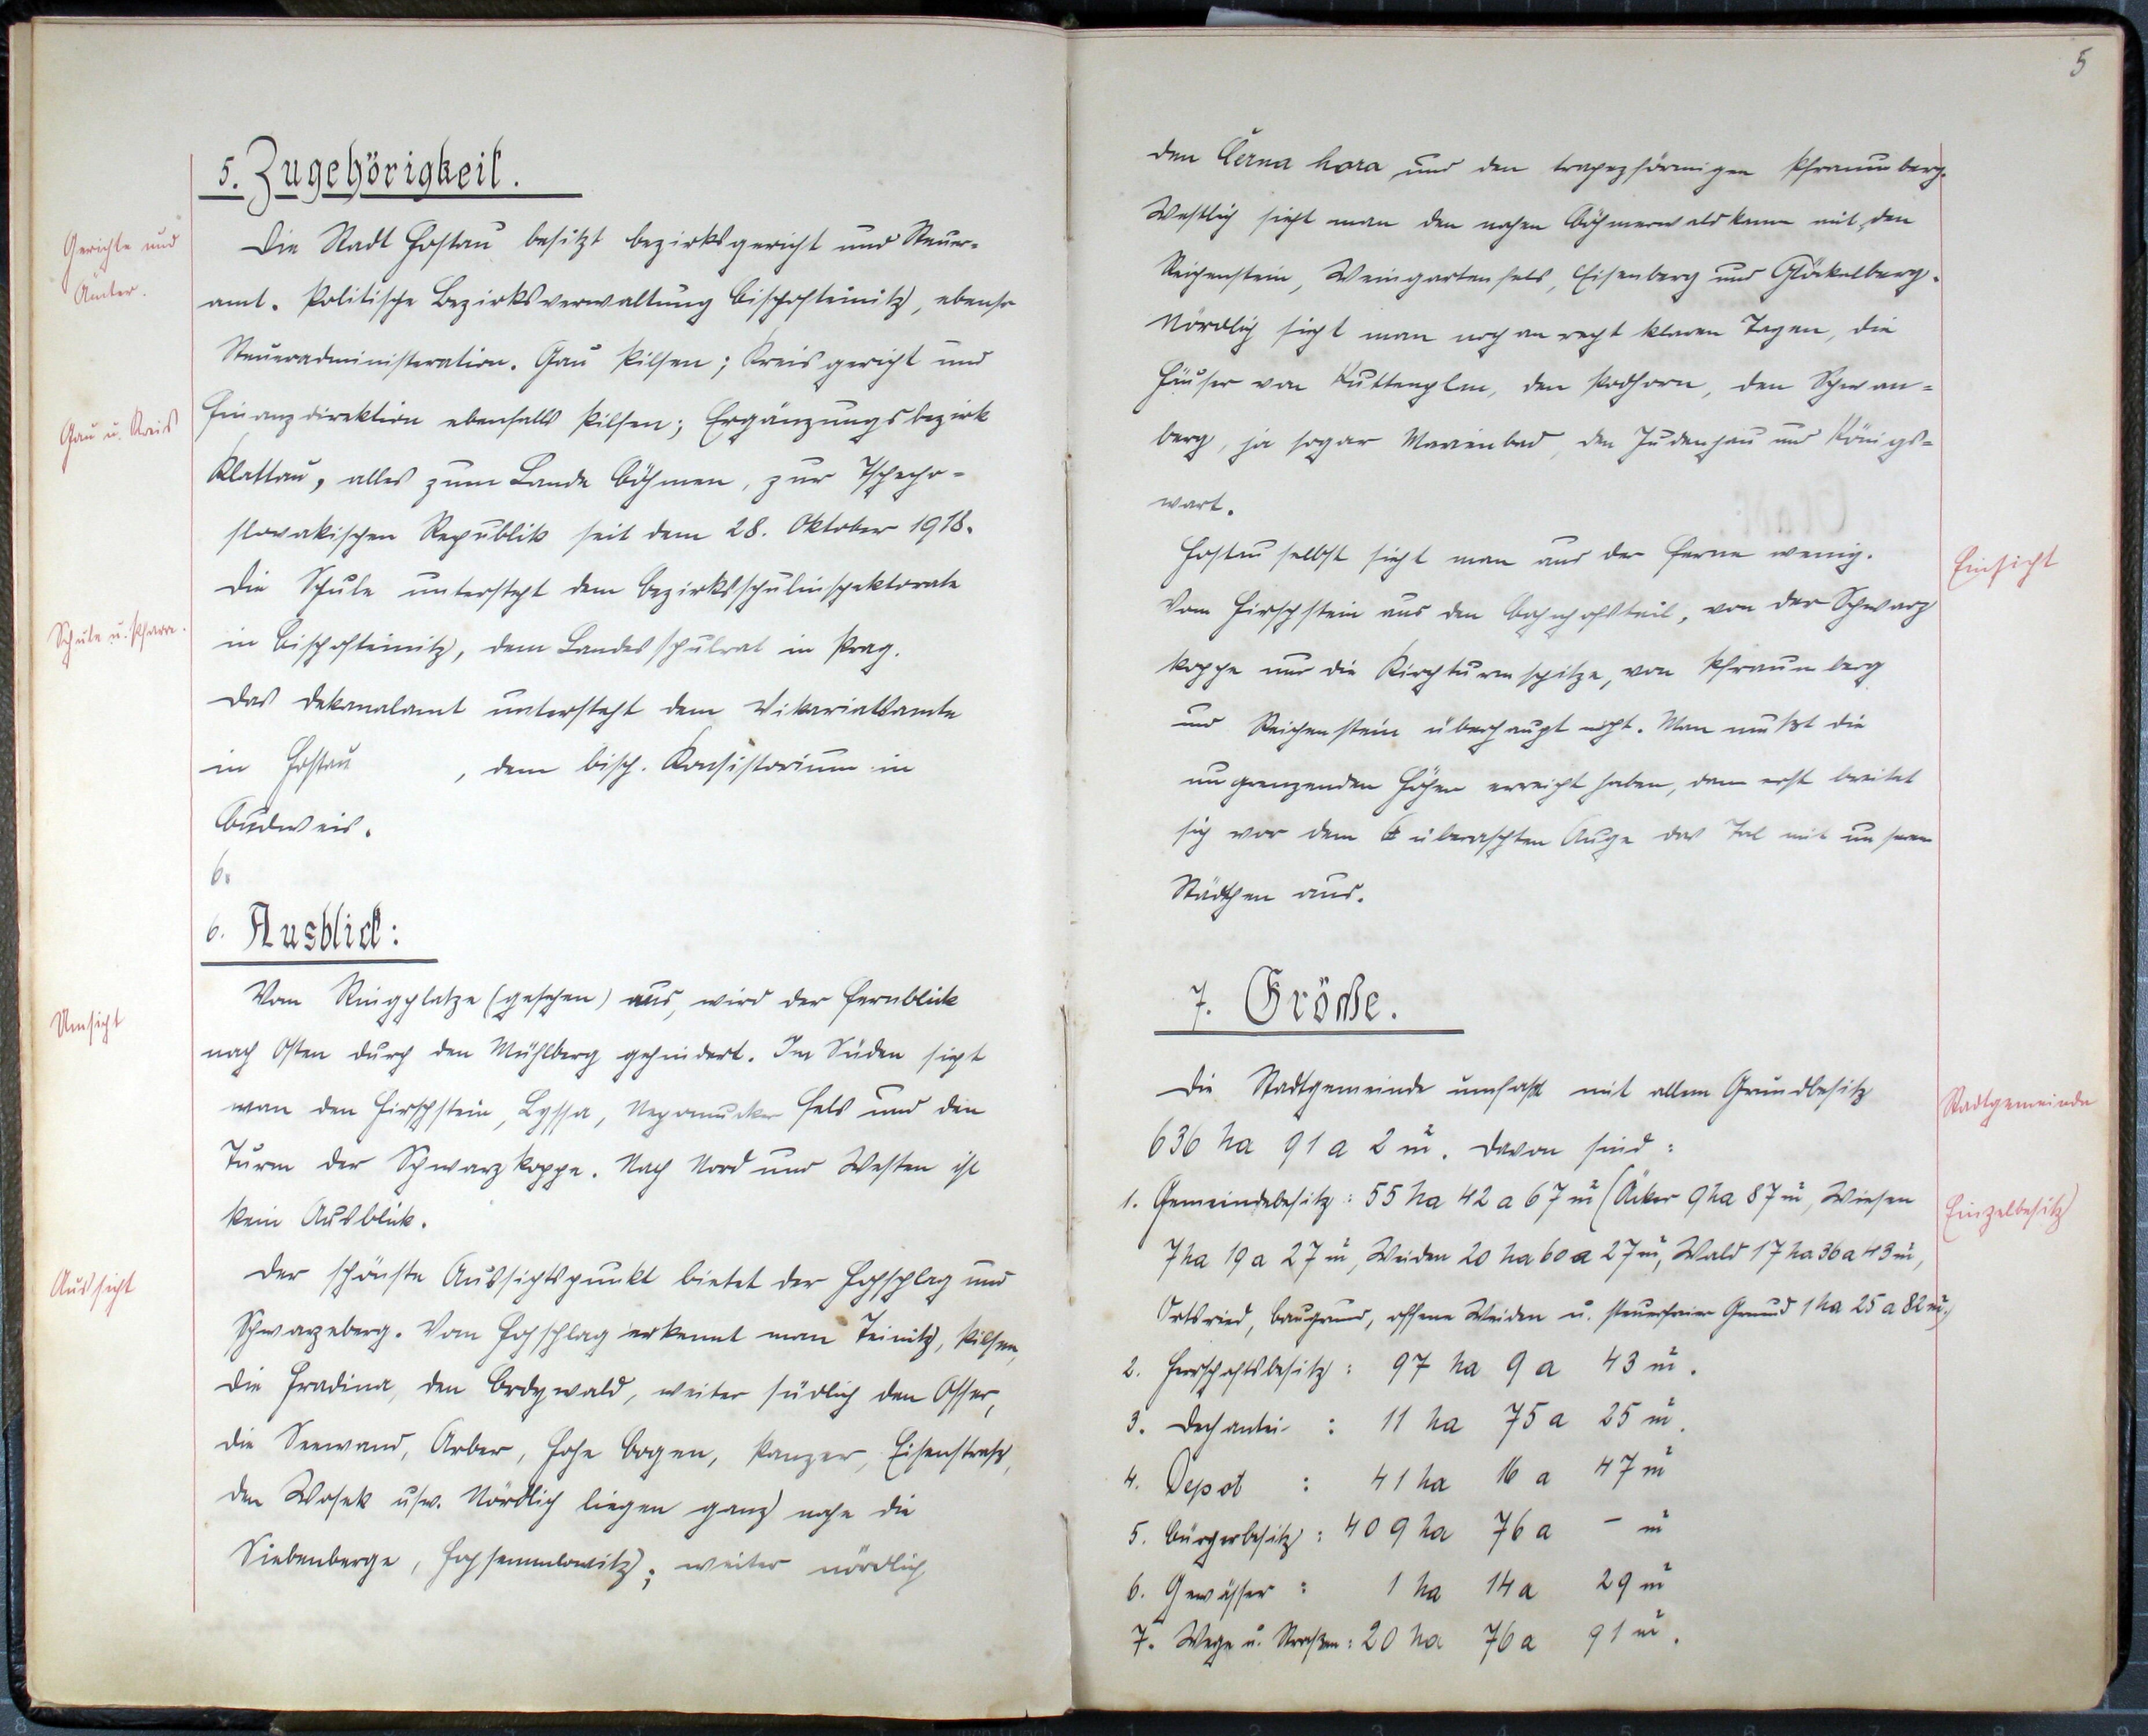 5. Zugehörigkeit.
Gerichte und
Ämter.
Die Stadt Hostau besitzt Bezirksgericht und Steuer-
amt. Politische Bezirksverwaltung Bischofteinitz, ebenso
Steueradministeration. Gau Pilsen; Kreisgericht und
Gau u. Kreis
Finanzdirektion ebenfalls Pilsen; Ergänzungsbezirk
Klattau, alles zum Lande Böhmen, zur Tschecho-
slovakischen Republik seit dem 28. Oktober 1918.
Die Schule untersteht dem Bezirksschulinspektorate
Schule u. Pfarre.
in Bischofteinitz, dem Landesschulrat in Prag.
Das Dekanalamt untersteht dem Vikariatsamte
in Hostau , dem bisch. Konsistorium in
Budweis.
6.
6. Ausblick:
Umsicht
Vom Ringplatze (gesehen) aus, wird der Fernblick
nach Osten durch den Mühlberg gehindert. Im Süden sieht
man den Hirschstein, Lyssa, Nepomucker Fels und den
Turm der Schwarzkoppe. Nach Nord und Westen ist
kein Ausblick.
Aussicht
Der schönste Aussichtspunkt bietet der Hochschlag und
Schwarzeberg. Vom Hochschlag erkennt man Teinitz, Pilsen,
die Hradina, den Brdywald, weiter südlich den Osser,
die Seewand, Arber, Hohe Bogen, Panzer, Eisenstraß,
den Wosek usw. Nördlich liegen ganz nahe die
Siebenberge, Hochsemlowitz; weiter nördlich
5
den Černa hora und den trapezförmigen Pfraumberg.
Westlich sieht man den nahen Böhmerwaldkamm mit, den
Reichenstein, Weingartenfels, Eisenberg und Glöckelberg.
Nördlich sieht man noch an recht klaren Tagen, die
Häuser von Kuttenplan, den Podhorn, den Schwan=
berg, ja sogar Marienbad, den Judenhau und Königs=
wart.
Einsicht
Hostau selbst sieht man aus der Ferne wenig.
Vom Hirschstein aus den Bahnhofsteil, von der Schwarz
koppe nur die Kirchturmspitze, von Pfraumberg
und Reichenstein überhaupt nicht. Man mußt die
angrenzenden Höhen erreicht haben, dann erst breitet
sich vor dem überaschten Auge das Tal mit unseren
Städtchen aus.
7. Größe.
Stadtgemeinde
Die Stadtgemeinde umfaßt mit allem Grundbesitz
636 ha 91 a 2 m². Davon sind:
Einzelbesitz
1. Gemeindebesitz: 55 ha 42 a 67 m² (Äcker 9 ha 87 m², Wiesen
7 ha 19 a 27 m², Weiden 20 ha 60 a 27 m², Wald 17 ha 36 a 43 m²,
Ortsried, Baugrund, offene Weiden u. steuerfreier Grund 1 ha 25 a 82 m².)
2. Herrschaftsbesitz: 97 ha 9 a 43 m².
3. Dechantei : 11 ha 75 a 25 m².
4. Depot : 41 ha 16 a 47 m²
5. Bürgerbesitz: 409 ha 76 a - m²
6. Gewässer : 1 ha 14 a 29 m²
7. Wege u. Straßen: 20 ha 76 a 91 m².